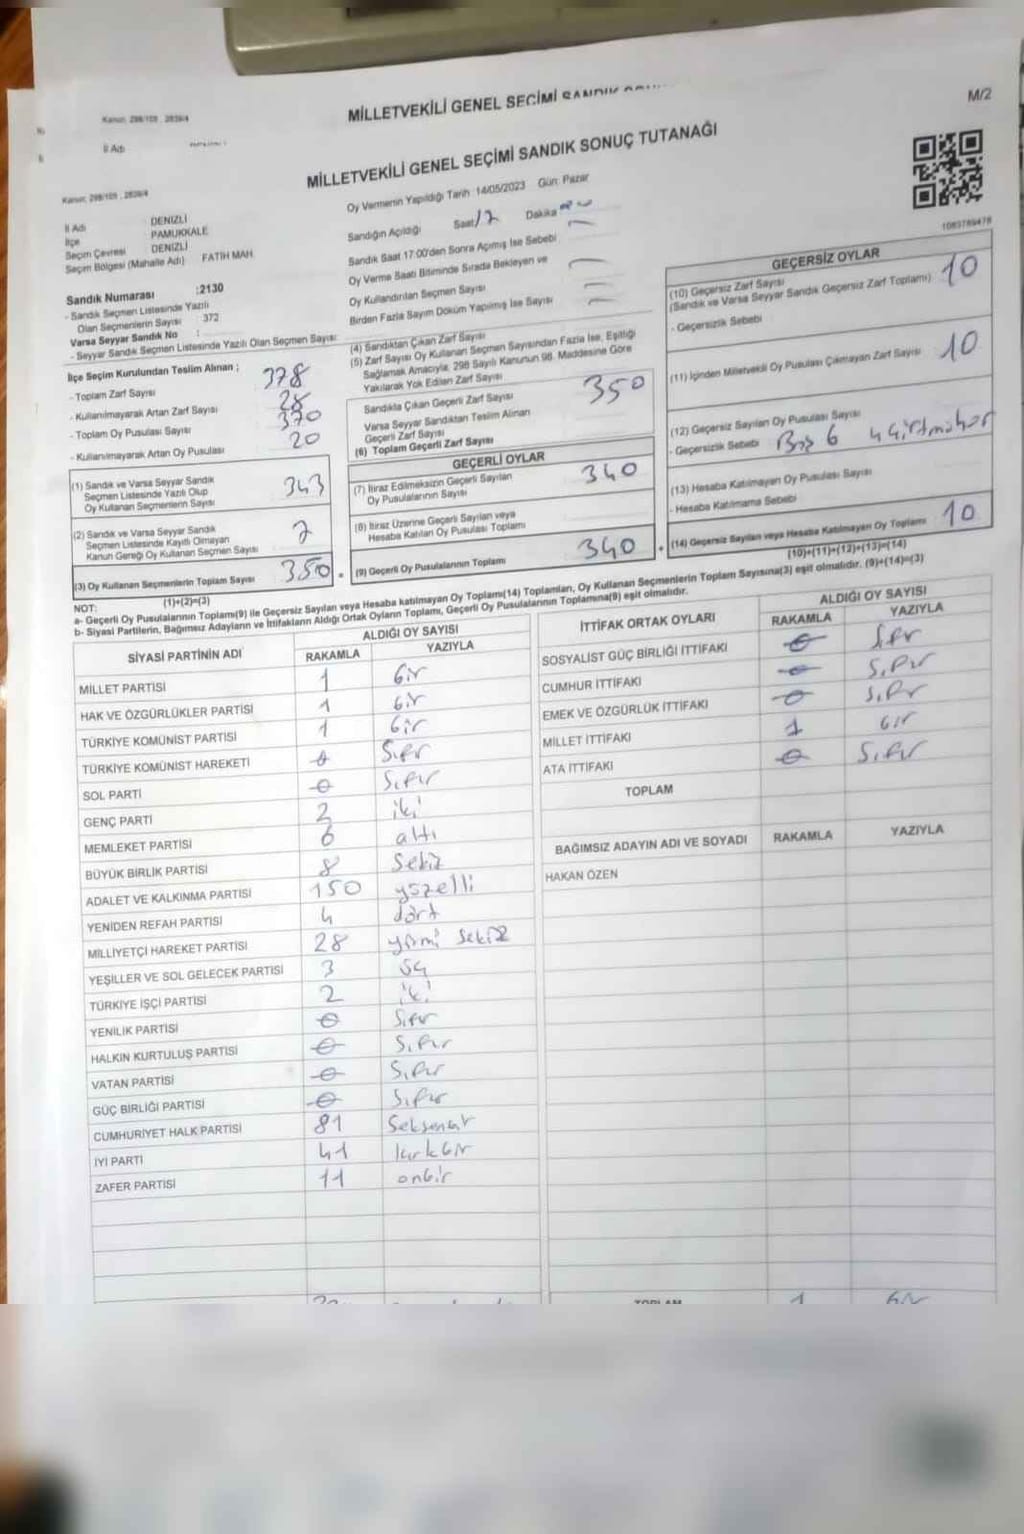 Kanun; 298/105 , 2839/4
MİLLETVEKİLİ GENEL SEÇİMİ
İl Adı
M/2
MİLLETVEKİLİ GENEL SEÇİMİ SANDIK SONUÇ TUTANAĞI
Kanun; 298/105 , 2839/4
Oy Vermenin Yapıldığı Tarih :14/05/2023 Gün: Pazar
İl Adı DENİZLİ
İlçe PAMUKKALE
Seçim Çevresi DENİZLİ
Seçim Bölgesi (Mahalle Adı) FATİH MAH.
Sandığın Açıldığı Saat 17 Dakika
Sandık Saat 17:00'den Sonra Açımış İse Sebebi
Oy Verme Saati Bitiminde Sırada Bekleyen ve
Oy Kullandırılan Seçmen Sayısı
Birden Fazla Sayım Döküm Yapılmış İse Sayısı
1083789478
Sandık Numarası :2130
- Sandık Seçmen Listesinde Yazılı
Olan Seçmenlerin Sayısı : 372
Varsa Seyyar Sandık No :
- Seyyar Sandık Seçmen Listesinde Yazılı Olan Seçmen Sayısı:
İlçe Seçim Kurulundan Teslim Alınan ;
- Toplam Zarf Sayısı 378
- Kullanılmayarak Artan Zarf Sayısı 28
- Toplam Oy Pusulası Sayısı 370
- Kullanılmayarak Artan Oy Pusulası 20
(1) Sandık ve Varsa Seyyar Sandık
Seçmen Listesinde Yazılı Olup
Oy Kullanan Seçmenlerin Sayısı 343
(2) Sandık ve Varsa Seyyar Sandık
Seçmen Listesinde Kayıtlı Olmayan
Kanun Gereği Oy Kullanan Seçmen Sayısı 7
(3) Oy Kullanan Seçmenlerin Toplam Sayısı 350
(1)+(2)=(3)
(4) Sandıktan Çıkan Zarf Sayısı
(5) Zarf Sayısı Oy Kullanan Seçmen Sayısından Fazla İse, Eşitliği
Sağlamak Amacıyla; 298 Sayılı Kanunun 98. Maddesine Göre
Yakılarak Yok Edilen Zarf Sayısı
Sandıkta Çıkan Geçerli Zarf Sayısı 350
Varsa Seyyar Sandıktan Teslim Alınan
Geçerli Zarf Sayısı
(6) Toplam Geçerli Zarf Sayısı
GEÇERLİ OYLAR
(7) İtiraz Edilmeksizin Geçerli Sayılan
Oy Pusulalarının Sayısı 340
(8) İtiraz Üzerine Geçerli Sayılan veya
Hesaba Katılan Oy Pusulası Toplamı
(9) Geçerli Oy Pusulalarının Toplamı 340
GEÇERSİZ OYLAR
(10) Geçersiz Zarf Sayısı 10
(Sandık ve Varsa Seyyar Sandık Geçersiz Zarf Toplamı)
- Geçersizlik Sebebi
(11) İçinden Milletvekili Oy Pusulası Çıkmayan Zarf Sayısı 10
(12) Geçersiz Sayılan Oy Pusulası Sayısı
- Geçersizlik Sebebi Boş 6 4
(13) Hesaba Katılmayan Oy Pusulası Sayısı
- Hesaba Katılmama Sebebi
(14) Geçersiz Sayılan veya Hesaba Katılmayan Oy Toplamı 10
(10)+(11)+(12)+(13)=(14)
NOT:
a- Geçerli Oy Pusulalarının Toplamı(9) ile Geçersiz Sayılan veya Hesaba katılmayan Oy Toplamı(14) Toplamları, Oy Kullanan Seçmenlerin Toplam Sayısına(3) eşit olmalıdır. (9)+(14)=(3)
b- Siyasi Partilerin, Bağımsız Adayların ve İttifakların Aldığı Ortak Oyların Toplamı, Geçerli Oy Pusulalarının Toplamına(9) eşit olmalıdır.
SİYASİ PARTİNİN ADI ALDIĞI OY SAYISI
RAKAMLA YAZIYLA
MİLLET PARTİSİ 1 bir
HAK VE ÖZGÜRLÜKLER PARTİSİ 1 bir
TÜRKİYE KOMÜNİST PARTİSİ 1 bir
TÜRKİYE KOMÜNİST HAREKETİ 0 Sıfır
SOL PARTİ 0 Sıfır
GENÇ PARTİ 2 iki
MEMLEKET PARTİSİ 6 altı
BÜYÜK BİRLİK PARTİSİ 8 Sekiz
ADALET VE KALKINMA PARTİSİ 150 yüzelli
YENİDEN REFAH PARTİSİ 4 dört
MİLLİYETÇİ HAREKET PARTİSİ 28 yirmi sekiz
YEŞİLLER VE SOL GELECEK PARTİSİ 3 üç
TÜRKİYE İŞÇİ PARTİSİ 2 iki
YENİLİK PARTİSİ 0 Sıfır
HALKIN KURTULUŞ PARTİSİ 0 Sıfır
VATAN PARTİSİ 0 Sıfır
GÜÇ BİRLİĞİ PARTİSİ 0 Sıfır
CUMHURİYET HALK PARTİSİ 81 Seksenbir
İYİ PARTİ 41 kırkbir
ZAFER PARTİSİ 11 onbir
İTTİFAK ORTAK OYLARI ALDIĞI OY SAYISI
RAKAMLA YAZIYLA
SOSYALİST GÜÇ BİRLİĞİ İTTİFAKI 0 Sıfır
CUMHUR İTTİFAKI 0 Sıfır
EMEK VE ÖZGÜRLÜK İTTİFAKI 0 Sıfır
MİLLET İTTİFAKI 1 bir
ATA İTTİFAKI 0 Sıfır
TOPLAM
BAĞIMSIZ ADAYIN ADI VE SOYADI RAKAMLA YAZIYLA
HAKAN ÖZEN
TOPLAM 1 bir